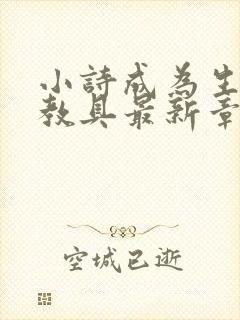 小詩成為生
教具最新章
空城已逝